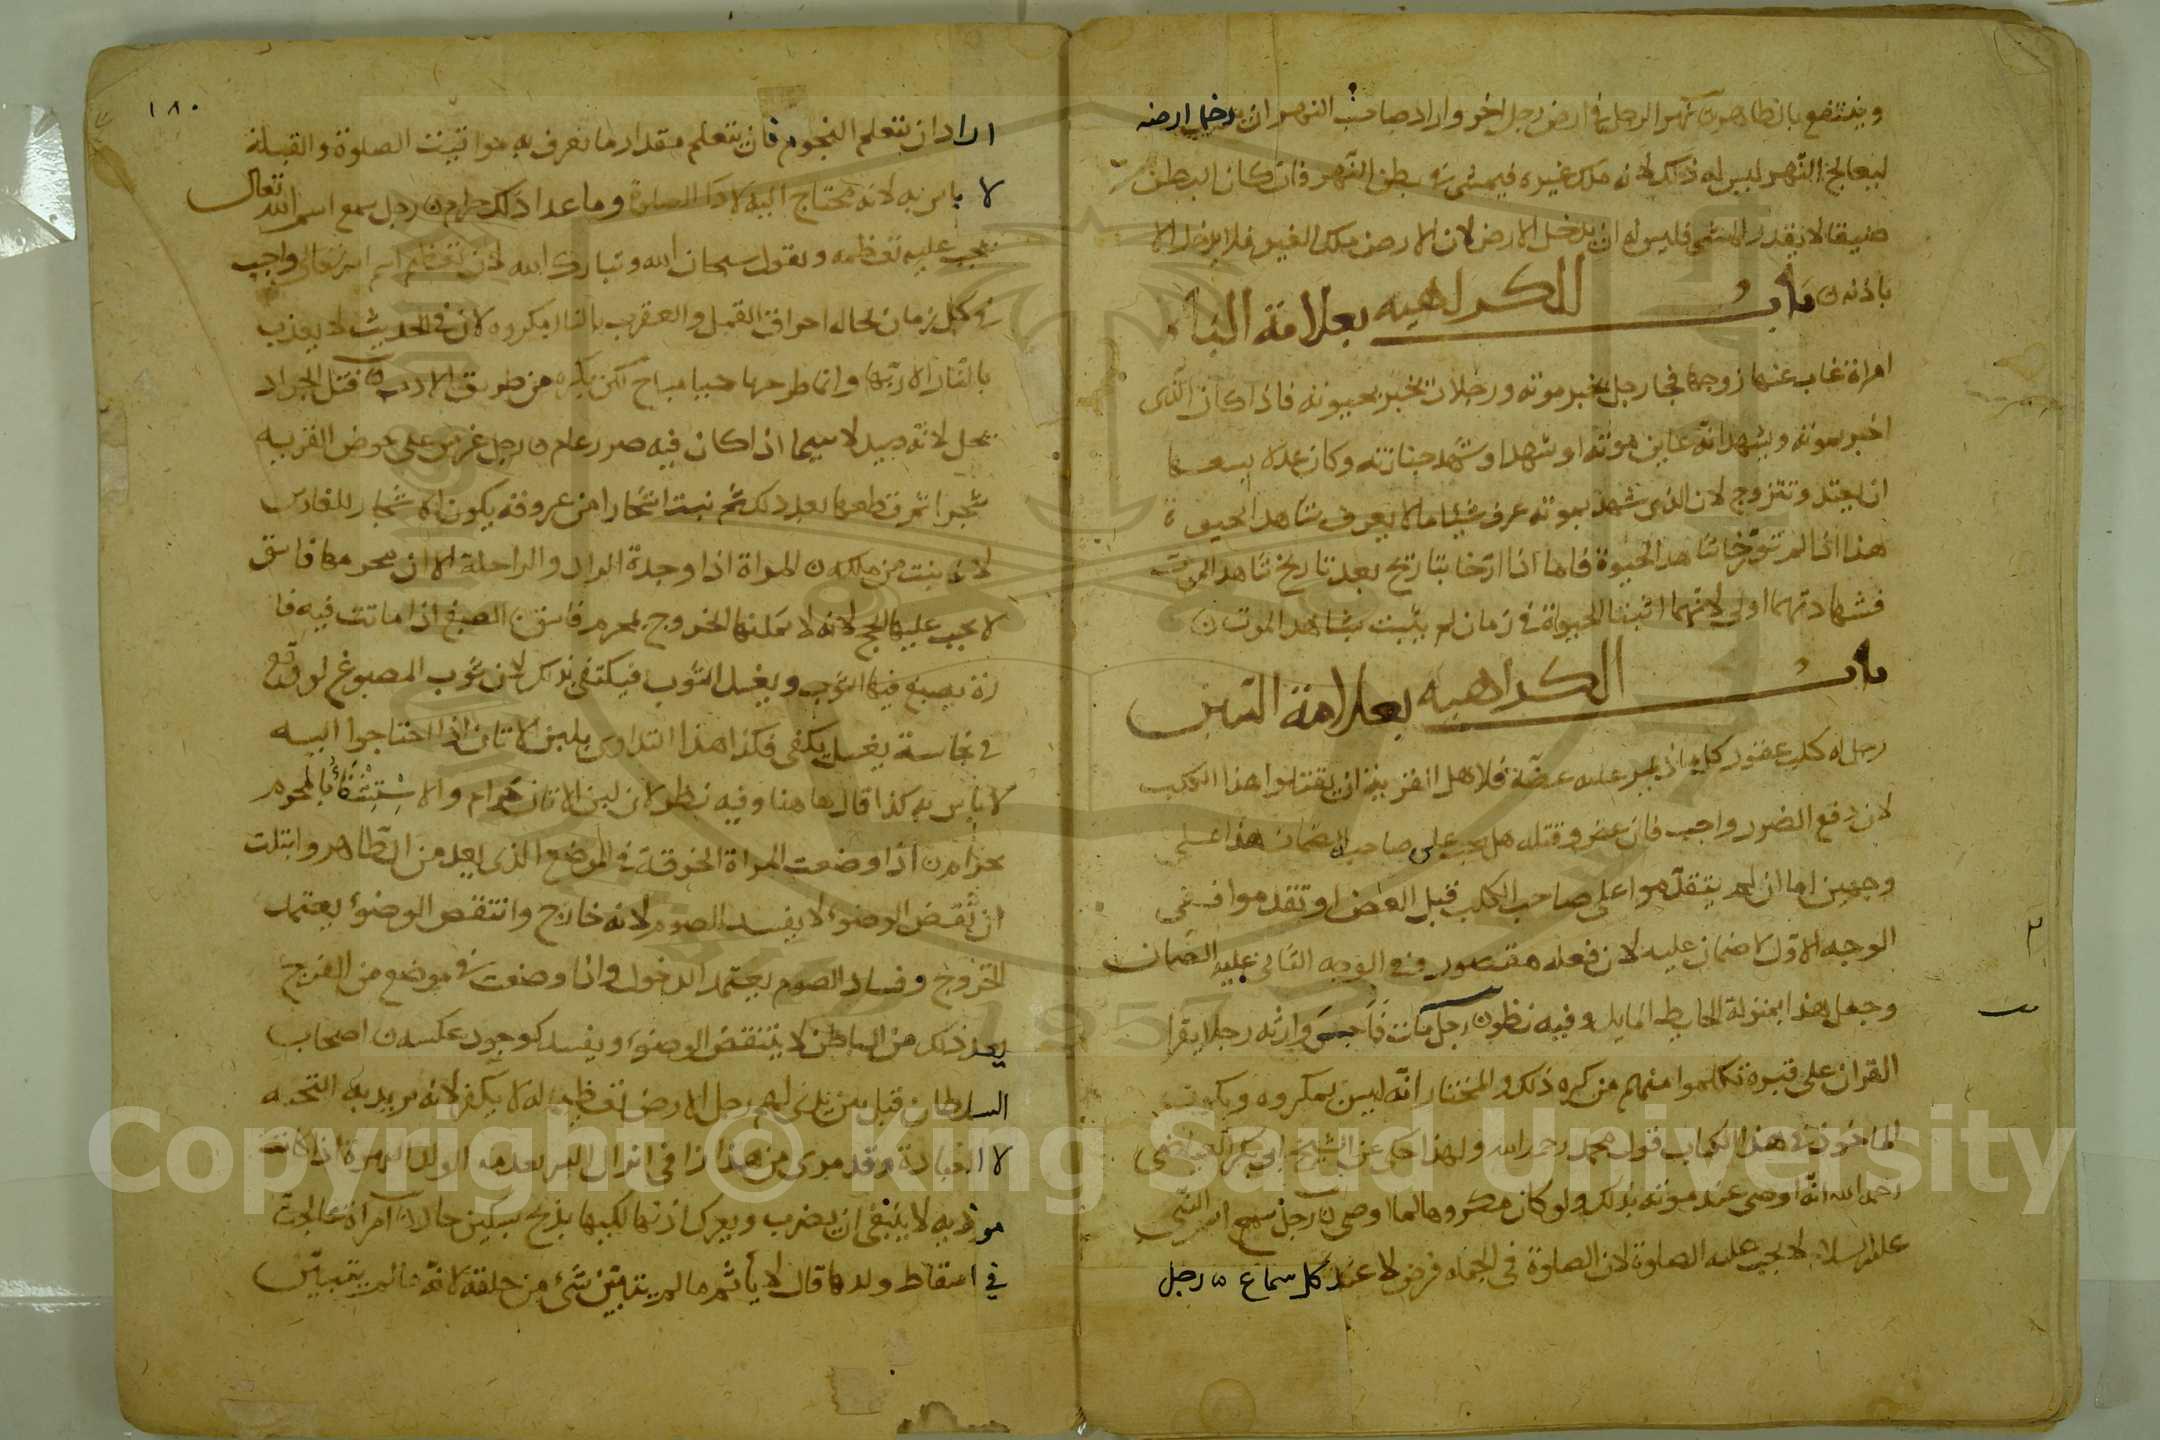 وينتفع بالطاهر ن نهر الرجل في ارض رجل اخر واراد صاحب النهر ان يدخل ارضه
ليعالج النهر ليس له ذلك لانه ملك غيره فيمشي في بطن النهر فان كان البطن
ضيقا لا يقدر المشي فليس له ان يدخل الارض لان الارض ملك الغير فلا يدخل الا
باذنه ن باب الكراهيه بعلامة
امراة غاب عنها زوجها فجا رجل يخبر موته ورجلان يخبر بحيوته فاذا كان الذي
اخبر بموته ويشهد انه عاين موته او شهد جنازته وكان عدلا يسعها
ان يعتد وتتزوج لان الذي شهد بموته عرف شيئا ما لا يعرف شاهد الحيوة
هذا اذا لم تورخا شاهد الحيوة فاما اذا ارخا بتاريخ بعد تاريخ شاهد الموت
فشهادتهما اولى لانهما اثبتا الحيوة في زمان لم يثبت شاهد الموت ن
باب الكراهيه بعلامة
رجل له كلب عقور كلما يمر عليه عضه فلاهل القرية ان يقتلوا هذا الكلب
لان دفع الضرر واجب فان عض وقتله هل يجب على صاحبه الضمان هذا على
وجهين اما ان لم يتقدموا على صاحب الكلب قبل العض او تقدموا ففي
الوجه الاول لا ضمان عليه لان فعله مقصور وفي الوجه الثاني عليه الضمان
وجعل هذا بمنزلة الحايط المايل وفيه نظر ن رجل مات فاجلس وارثه رجلا يقرا
القران على قبره تكلموا منهم من كره ذلك والمختار انه ليس بمكروه ويكون
الماخوذ في هذا الكتاب قول محمد رحمه الله ولهذا حكي عن الشيخ ابي بكر العياضي
رحمه الله انه اوصى عند موته بذلك ولو كان مكروها لما اوصى ن رجل سمع اسم النبي
عليه السلام لا يجب عليه الصلوة لان الصلوة في الجملة فرض لا عند كل سماع ن رجل
١٨٠
اراد ان يتعلم النجوم فان يتعلم مقدار ما يعرف به مواقيت الصلوة والقبلة
لا باس به لانه محتاج اليه لادا الصلوة وما عدا ذلك حرام ن رجل سمع اسم الله تعالى
يجب عليه تعظيمه ويقول سبحان الله وتبارك الله لان تعظيم اسم الله تعالى واجب
في كل زمان احراق القمل والعقرب بالنار مكروه لان في الحديث لا يعذب
بالنار الا ربها وانما طرحها حيا مباح لكن يكره من طريق الادب ن قتل الجراد
يحل لانه صيد لا سيما اذا كان فيه ضرر عام ن رجل غرس على حوض القريه
شجرا ثم قطعها بعد ذلك ثم نبت اشجارا من عروقه يكون الاشجار للغارس
لانه ينبت من ملكه ن المراة اذا وجدة الزاد والراحلة الا ان محرمها فاسق
لا يجب عليها الحج لانه لا يمكنها الخروج بمحرم فاسق ن الصبغ اذا ماتت فيه فا
رة يصبغ فيها الثوب ويغسل الثوب فيكتفى بذلك لان ثوب المصبوغ لو وقع
في نجاسة يغسل يكفى فكذا هذا التداوي بلبن الاتان اذا احتاجوا اليه
لا باس به كذا قال هاهنا وفيه نظر لان لبن الاتان حرام والاستشفاء بالمحرم
حرام ن اذا وضعت المراة الخرقة في الموضع الذي يعد من الظاهر وابتلت
انتقض الوضوء لا يفسد الصوم لانه خارج وانتقض الوضوء يعتمد
الخروج وفساد الصوم يعتمد الدخول واذا وضعت في موضع من الفرج
يعد ذلك من الباطن لا ينتقض الوضوء ويفسد لوجود عكسه ن اصحاب
السلطان قبل بين يدي لهم رجل الارض تعظيما له لا يكفر لانه يريد به التحيه
لا العبادة وقد مر من هذا
موذيه لا ينبغي ان يضرب ويعرك اذنها لكنها يذبح بسكين حاد ن امراة عالجت
في اسقاط ولدها قال لا يأثم ما لم يتبين شئ من خلقه لانه ما لم يتبين
Copyright © King Saud University
1957